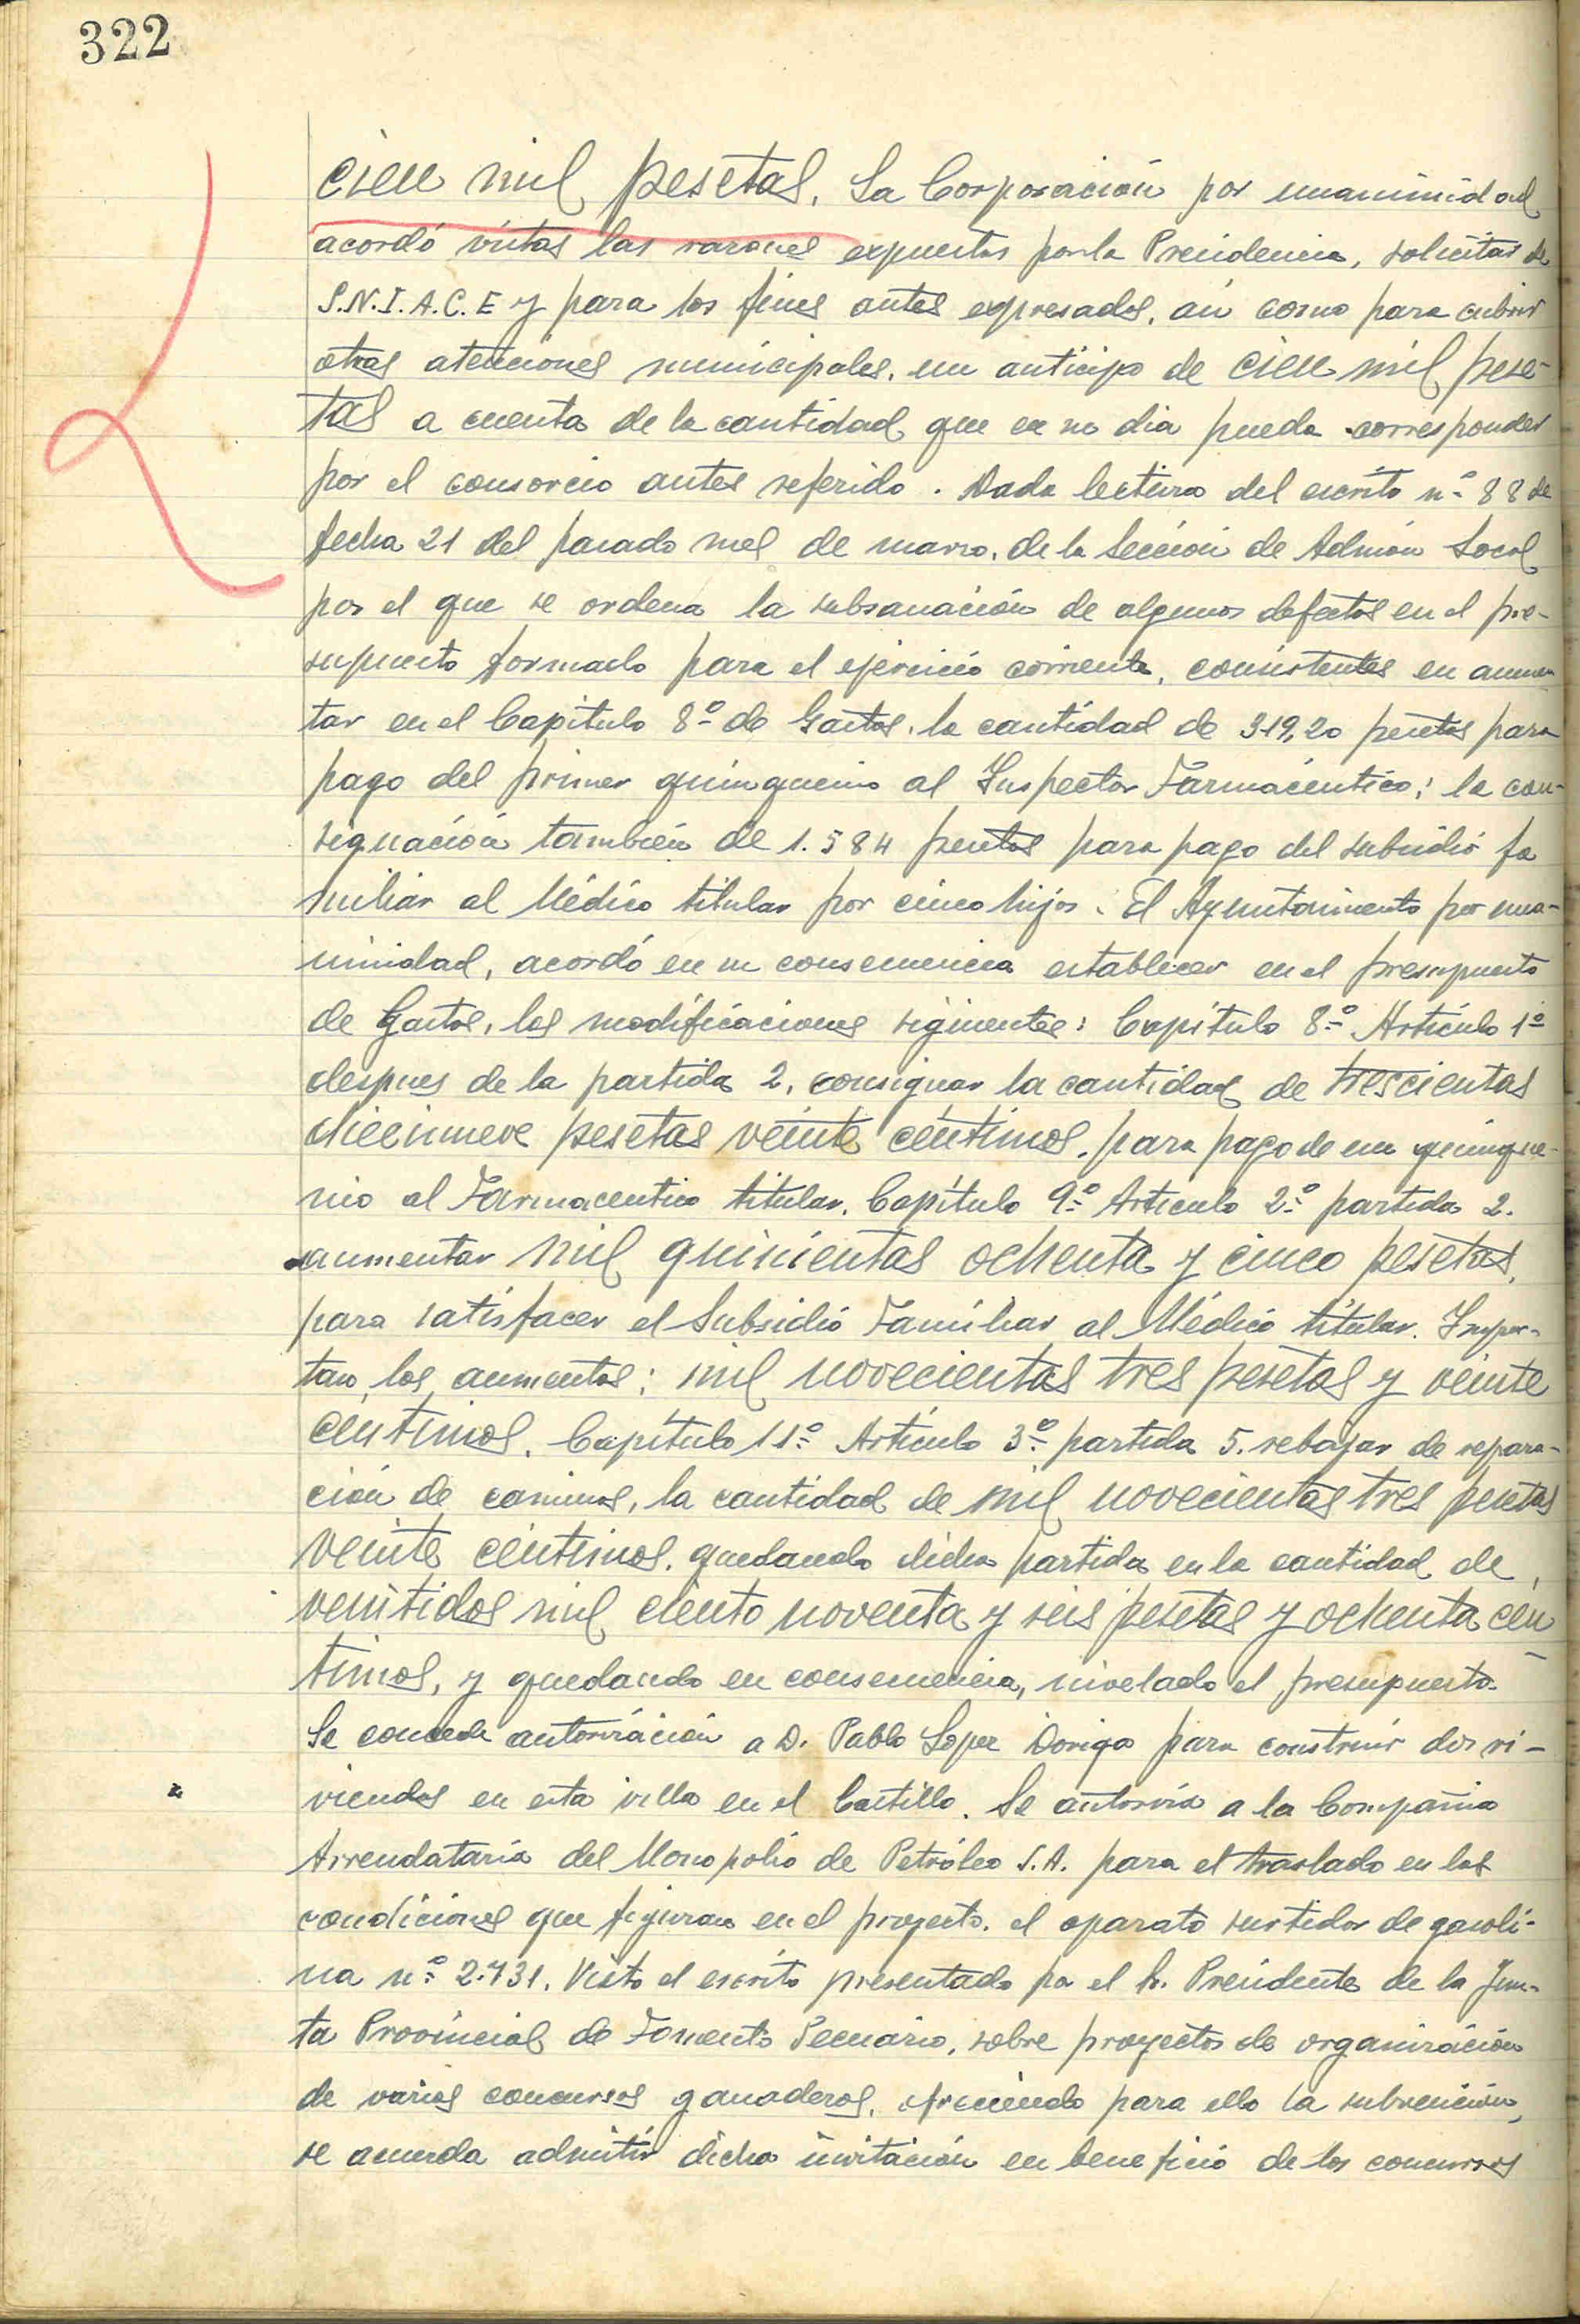 322
cien mil pesetas. La Corporación por unanimidad
acordó vistas las razones expuestas por la Presidencia, solicitar de
S.N.I.A.C.E y para los fines antes expresados, así como para cubrir
otras atenciones municipales, un anticipo de cien mil pese-
tas a cuenta de la cantidad que en su dia pueda corresponder
por el consorcio antes referido. Dada lectura del escrito nº 88 de
fecha 21 del pasado mes de marzo, de la Sección de Admón Local
por el que se ordena la subsanación de algunos defectos en el pre-
supuesto formado para el ejercicio corriente, consistentes en aumen
tar en el Capítulo 8º de Gastos, la cantidad de 319,20 pesetas para
pago del primer quinquenio al Inspector Farmacéutico; la con-
signación también de 1.584 pesetas para pago del subsidio fa
miliar al Médico titular por cinco hijos. El Ayuntamiento por una-
nimidad, acordó en su consecuencia establecer en el presupuesto
de Gastos, las modificaciones siguientes: Capítulo 8º Artículo 1º
despues de la partida 2, consignar la cantidad de trescientas
diecinueve pesetas veinte céntimos, para pago de un quinque-
nio al Farmaceutico titular. Capítulo 9º Articulo 2º partida 2.
aumentar mil quinientas ochenta y cinco pesetas,
para satisfacer el Subsidio Familiar al Médico titular. Impor-
tan los aumentos: mil novecientas tres pesetas y veinte
céntimos. Capítulo 11º Artículo 3º partida 5. rebajar de repara-
ción de caminos, la cantidad de mil novecientas tres pesetas
veinte céntimos. quedando dicha partida en la cantidad de
veintidos mil ciento noventa y seis pesetas y ochenta cén
timos, y quedando en consecuencia, nivelado el presupuesto.
Se concede autorización a D. Pablo Lopez Doriga para construir dos vi-
viendas en esta villa en el Castillo. Se autoriza a la Compañia
Arrendataria del Monopolio de Petróleo S.A. para el traslado en las
condiciones que figuran en el proyecto, el aparato surtidor de gasoli-
na nº 2.731. Visto el escrito presentado por el Sr. Presidente de la Jun-
ta Provincial de Fomento Pecuario, sobre proyectos de organización
de varios concursos ganaderos, ofreciendo para ello la subvención,
se acuerda admitir dicha invitación en beneficio de los concursos